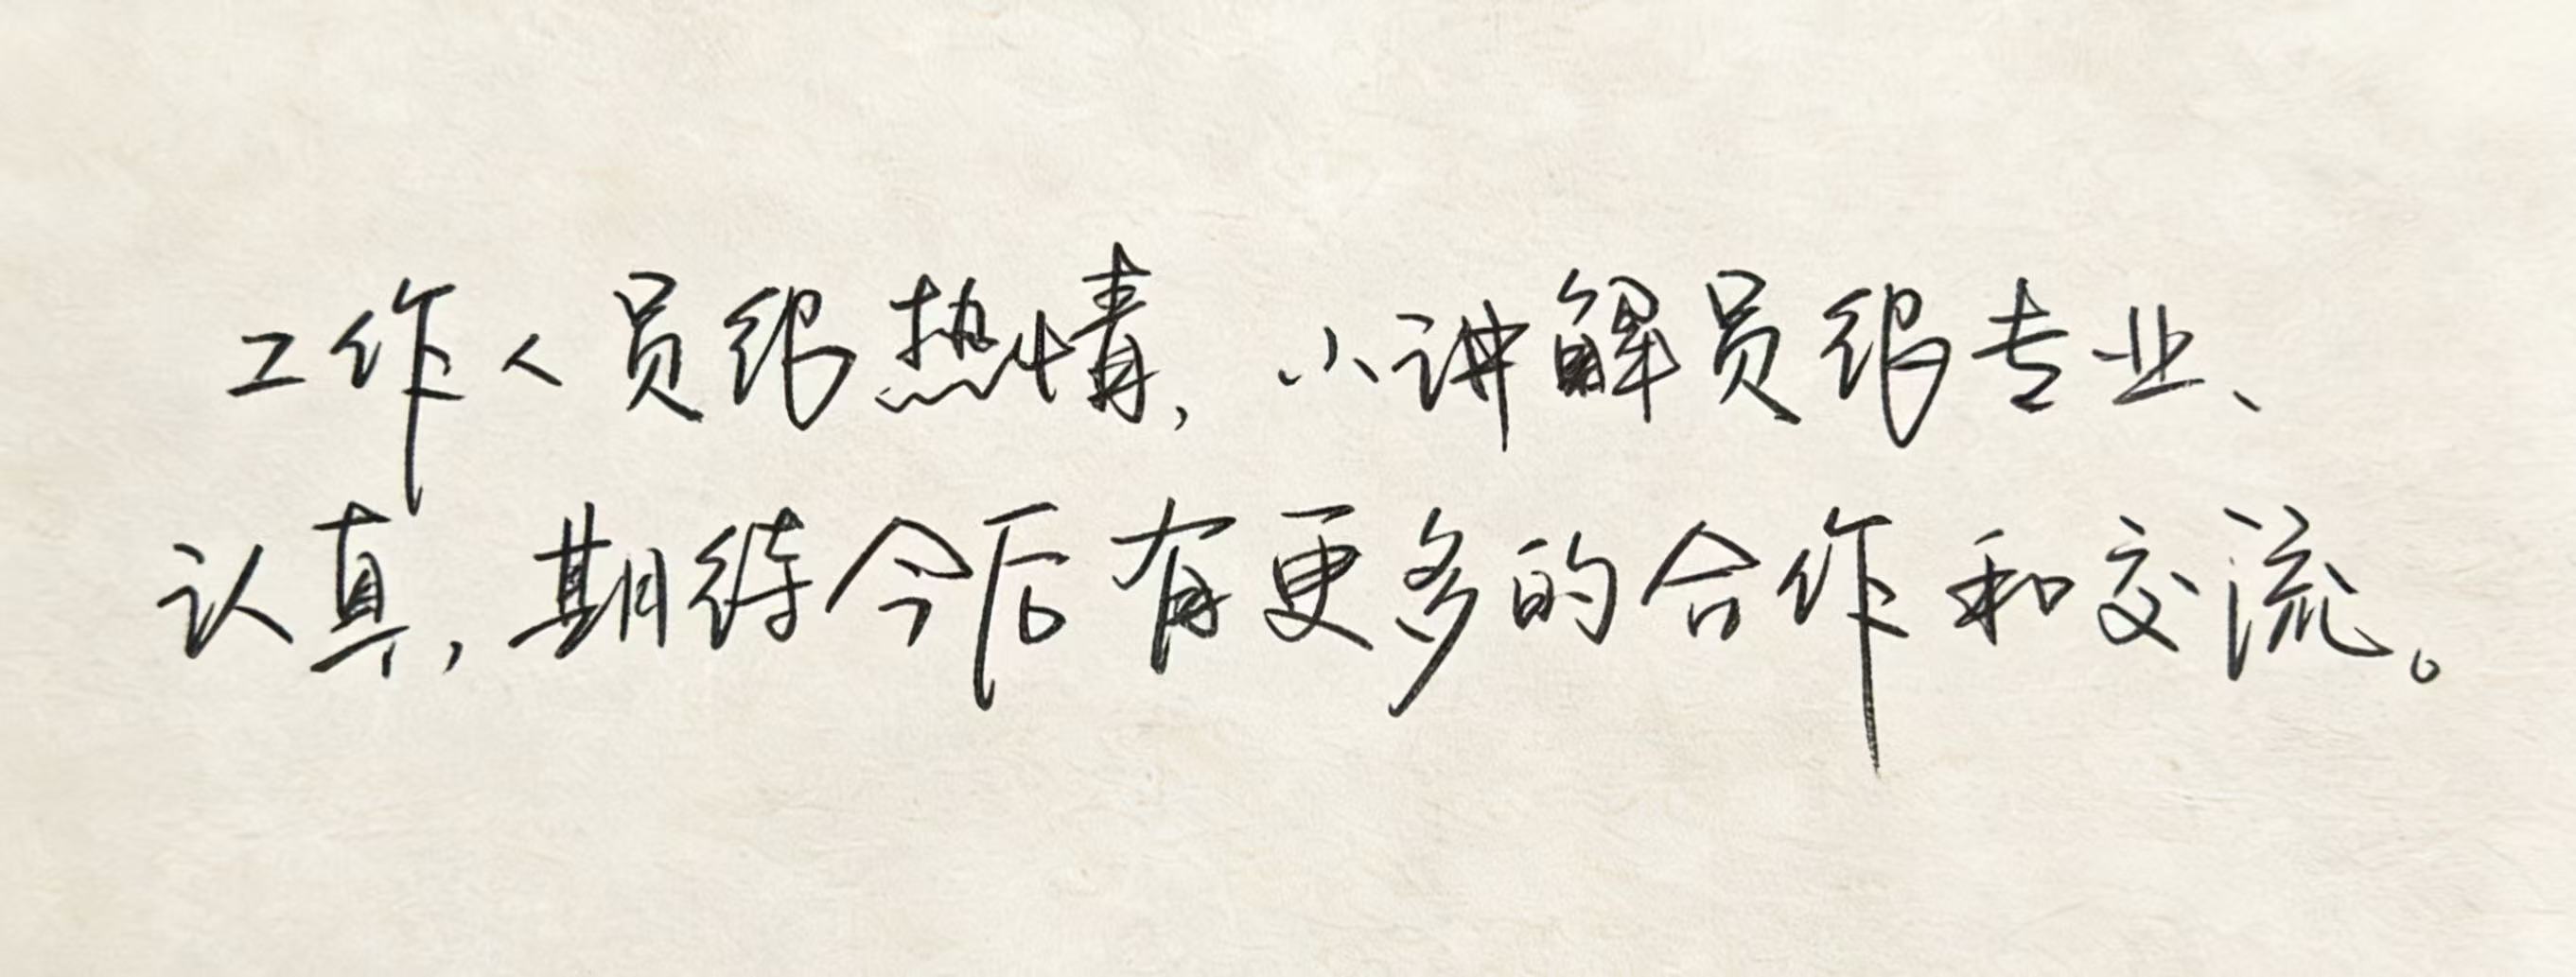 工作人员很热情，小讲解员很专业、
认真，期待今后有更多的合作和交流。